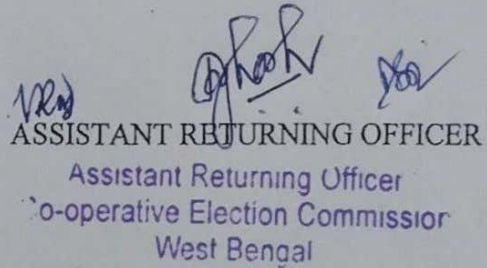 ASSISTANT RETURNING OFFICER
Assistant Returning Officer
o-operative Election Commission
West Bengal